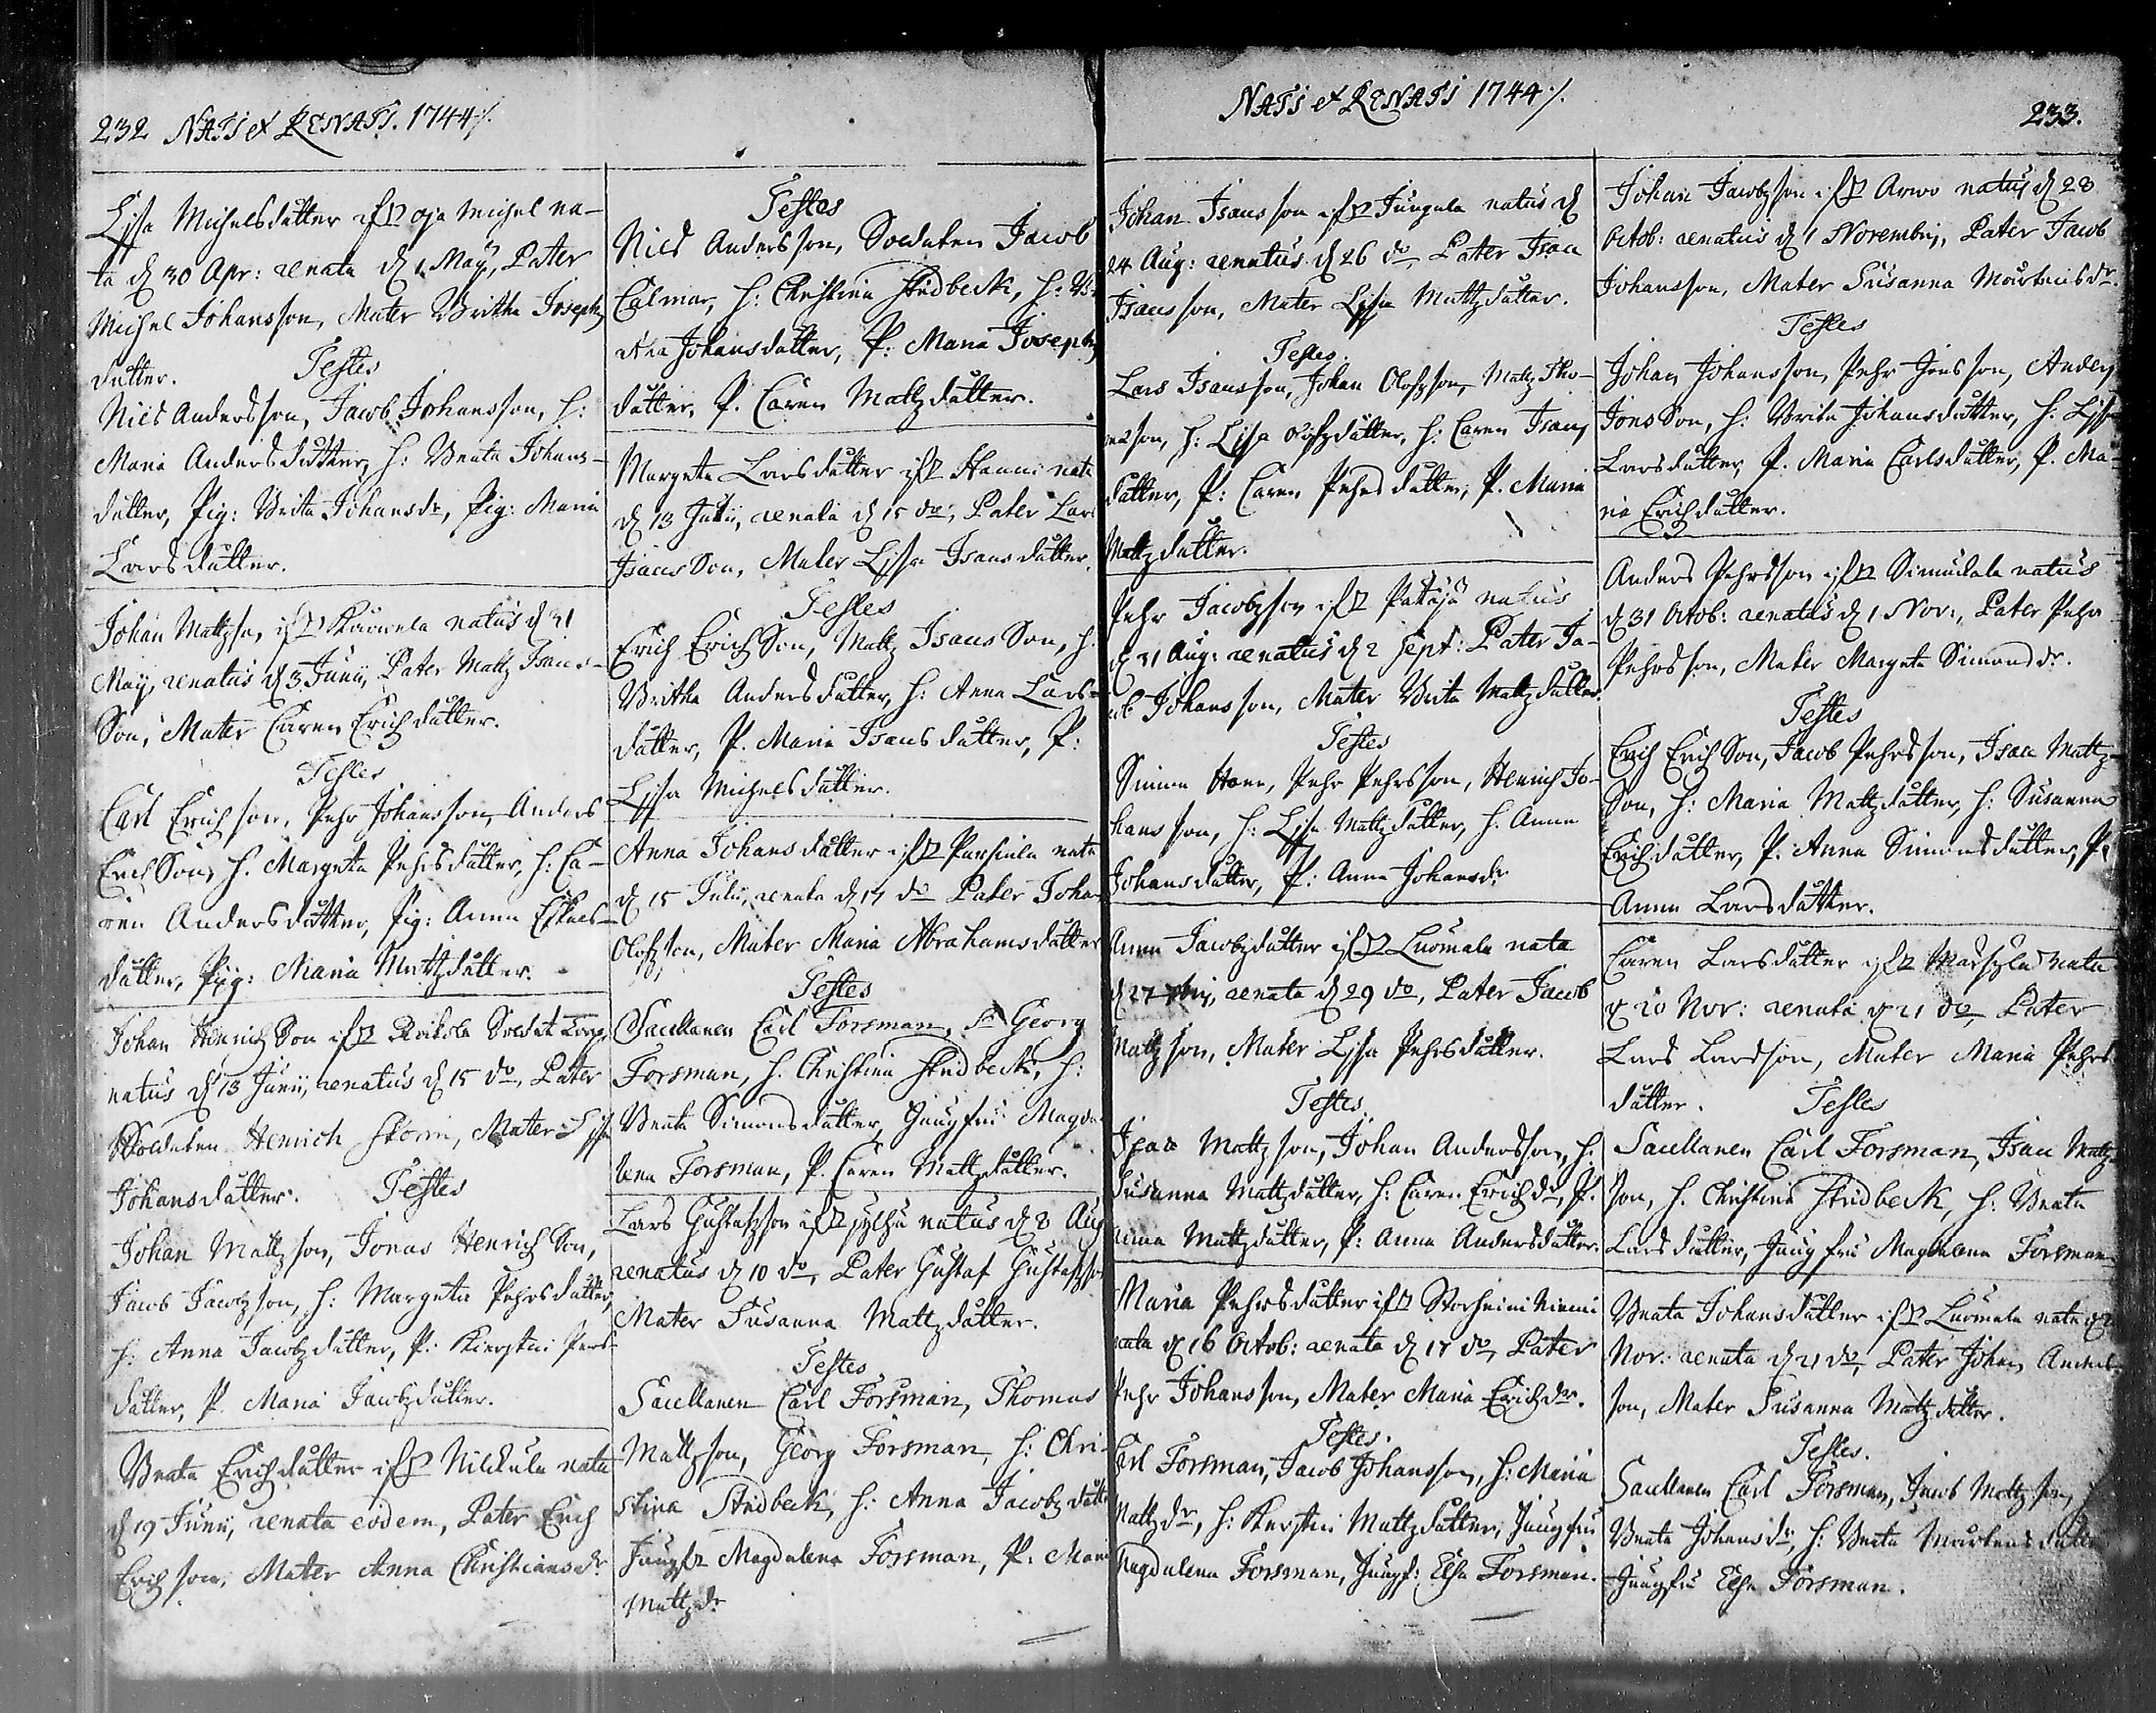 232 NATI et RENATI. 1744 ./.
Lisa Michelsdåtter ifr. Oja Michel na-
ta d. 30 Apr: renata d. 1 Maÿ, Pater
Michel Johansson, Mater Britha Josephs
dåtter. Testes
Nils Andersson, Jacob Johansson, h:
Maria Andersdåtter, h: Beata Johans-
dåtter, Pig: Brita Johansdr, Pig: Maria
Larsdåtter.
Johan Mattzson, ifr. natus d. 31
Maÿ, renatus d. 3. Junii, Pater Mattz Isaacs-
Son, Mater Caren Erichdåtter.
Testes
Carl Erichson, Pehr Johansson, Anders
ErichSon, h. Margeta Pehrsdåtter, h. Ca-
ren Andersdåtter, Pig: Anna
dåtter, Pig: Maria Mattzdåtter.
Johan HenrichSon ifr. Soldat
natus d. 13 Junii, renatus d. 15 do, Pater
Soldaten Henrich Storm, Mater Lisa
Johansdåtter. Testes
Johan Mattzson, Jonas HenrichSon,
Jacob Jacobzson, h: Margeta Pehrsdåtter,
h: Anna Jacobzdåtter, P: Kierstin Pers-
dåtter, P. Maria Jacobzdåtter.
Beata Erichdåtter ifr. Nickula nata
d. 19 Junii, renata eodem, Pater Erich
Erichson, Mater Anna Christiansdr
Testes
Nils Andersson, Soldaten Jacob
Calmar, h: Christina Stridbeck, h: B-
Johansdåtter, P: Maria Josephs
dåtter, P. Caren Mattzdåtter.
Margeta Larsdåtter ifr. Hanni nata
d. 13 Julii, renata d. 15 do, Pater Lars
IsaacsSon, Mater Lisa Isaacsdåtter.
Testes
Erich ErichSon, Mattz IsaacsSon, h.
Britha Andersdåtter, h: Anna Lars-
dåtter, P. Maria Isaacsdåtter, P:
Lisa Michelsdåtter.
Anna Johansdåtter ifr. Passiala nata
d. 15 Julii, renata d. 17 do Pater Johan
Olofzson, Mater Maria Abrahamsdåtter
Testes
Sacellanen Carl Forsman, Georg
Forsman, h. Christina Stridbeck, h:
Beata Simonsdåtter, Jungfru Magda-
lena Forsman, P. Caren Mattzdåtter.
Lars Gustafzson ifr. natus d. 8 Aug
renatus d. 10 do, Pater Gustaf Gustafzson
Mater Susanna Mattzdåtter.
Testes
Sacellanen Carl Forsman, Thomas
Mattzson, Georg Forsman, h: Chri-
stina Stridbeck, h: Anna Jacobzdåtter
Jungfr Magdalena Forsman, P: Maria
Mattzdr
NATI et RENATI 1744 ./.
233.
Johan Isacsson ifr. Jungala natus d.
24 Aug: renatus d. 26 do, Pater Isac
Isacsson, Mater Lisa Mattzdåtter.
Testes.
Lars Isacsson, Johan Olofzson, Mattz Tho-
masson, h: Lisa Olofzdåtter, h: Caren Isacs
dåtter, P: Caren Pehrsdåtter, P. Maria
Mattzdåtter.
Pehr Jacobzson ifr. Pattaja natus
d. 31 Aug: renatus d. 2 Sept: Pater Ja-
cob Johansson, Mater Brita Mattzdåtter.
Testes
Simon Hane, Pehr Pehrsson, Henrich Jo-
hansson, h: Lisa Mattzdåtter, h. Anna
Johansdåtter, P: Anna Johansdr
Anna Jacobzdåtter ifr. Luomala nata
d. 27 7bris, renata d. 29 do, Pater Jacob
Mattzson, Mater Lisa Pehrsdåtter.
Testes.
Isaac Mattzson, Johan Andersson, h.
Susanna Mattzdåtter, h: Caren Erichdr, P.
Anna Mattzdåtter, P: Anna Andersdåtter.
Maria Pehrsdåtter ifr. Storheininiemi
nata d. 16 Octob: renata d. 17 do, Pater
Pehr Johansson, Mater Maria Erichdr.
Testes.
Carl Forsman, Jacob Johansson, h: Maria
Mattzdr, h: Kerstin Mattzdåtter, Jungfru
Magdalena Forsman, Jungf: Elsa Forsman.
Johan Jacobzson ifr. Arwo natus d. 28
Octob: renatus d. 1 Novembris, Pater Jacob
Johansson, Mater Susanna Mårtensdr.
Testes
Johan Johansson, Pehr Jönsson, Anders
JönsSon, h: Brita Johansdåtter, h. Lisa
Larsdåtter, P. Maria Carlsdåtter, P. Ma-
ria Erichdåtter.
Anders Pehrsson ifr. Simuckala natus
d. 31 Octob: renatus d. 1 Nov:, Pater Pehr
Pehrsson, Mater Margeta Simonsdr.
Testes
Erich ErichSon, Jacob Pehrsson, Isac Mattz-
Son, h: Maria Mattzdåtter, h: Susanna
Erichdåtter, P. Anna Simonsdåtter, P:
Anna Larsdåtter.
Caren Larsdåtter ifr. nata
d. 20 Nov: renata d. 21 do, Pater
Lars Larsson, Mater Maria Pehrs
dåtter. Testes
Sacellanen Carl Forsman, Isac Mattz
son, h. Christina Stridbeck, h: Beata
Larsdåtter, Jungfru Magdalena Forsman
Beata Johansdåtter ifr. Luomala nata d.
Nov: renata d. 21 do, Pater Johan Anders
son, Mater Susanna Mattzdåtter.
Testes.
Sacellanen Carl Forsman, Jacob Mattzson,
Beata Johansdr, h: Beata Mårtensdåtter
Jungfru Elsa Forsman.